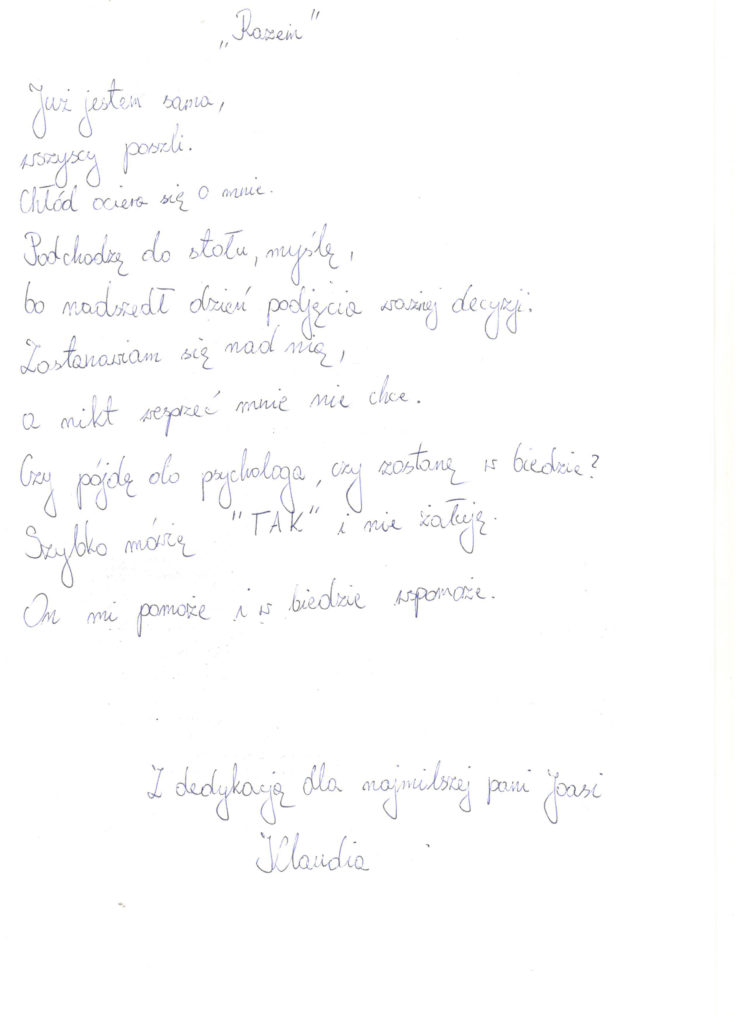 „Razem"
Już jestem sama,
wszyscy poszli.
Chłód ociera się o mnie.
Podchodzę do stołu, myślę,
bo nadszedł dzień podjęcia ważnej decyzji.
Zastanawiam się nad nią,
a nikt wesprzeć mnie nie chce.
Czy pójdę do psychologa, czy zostanę w biedzie?
Szybko mówię "TAK" i nie żałuję.
On mi pomoże i w biedzie wspomoże.
Z dedykacją dla najmilszej pani Joasi
Klaudia